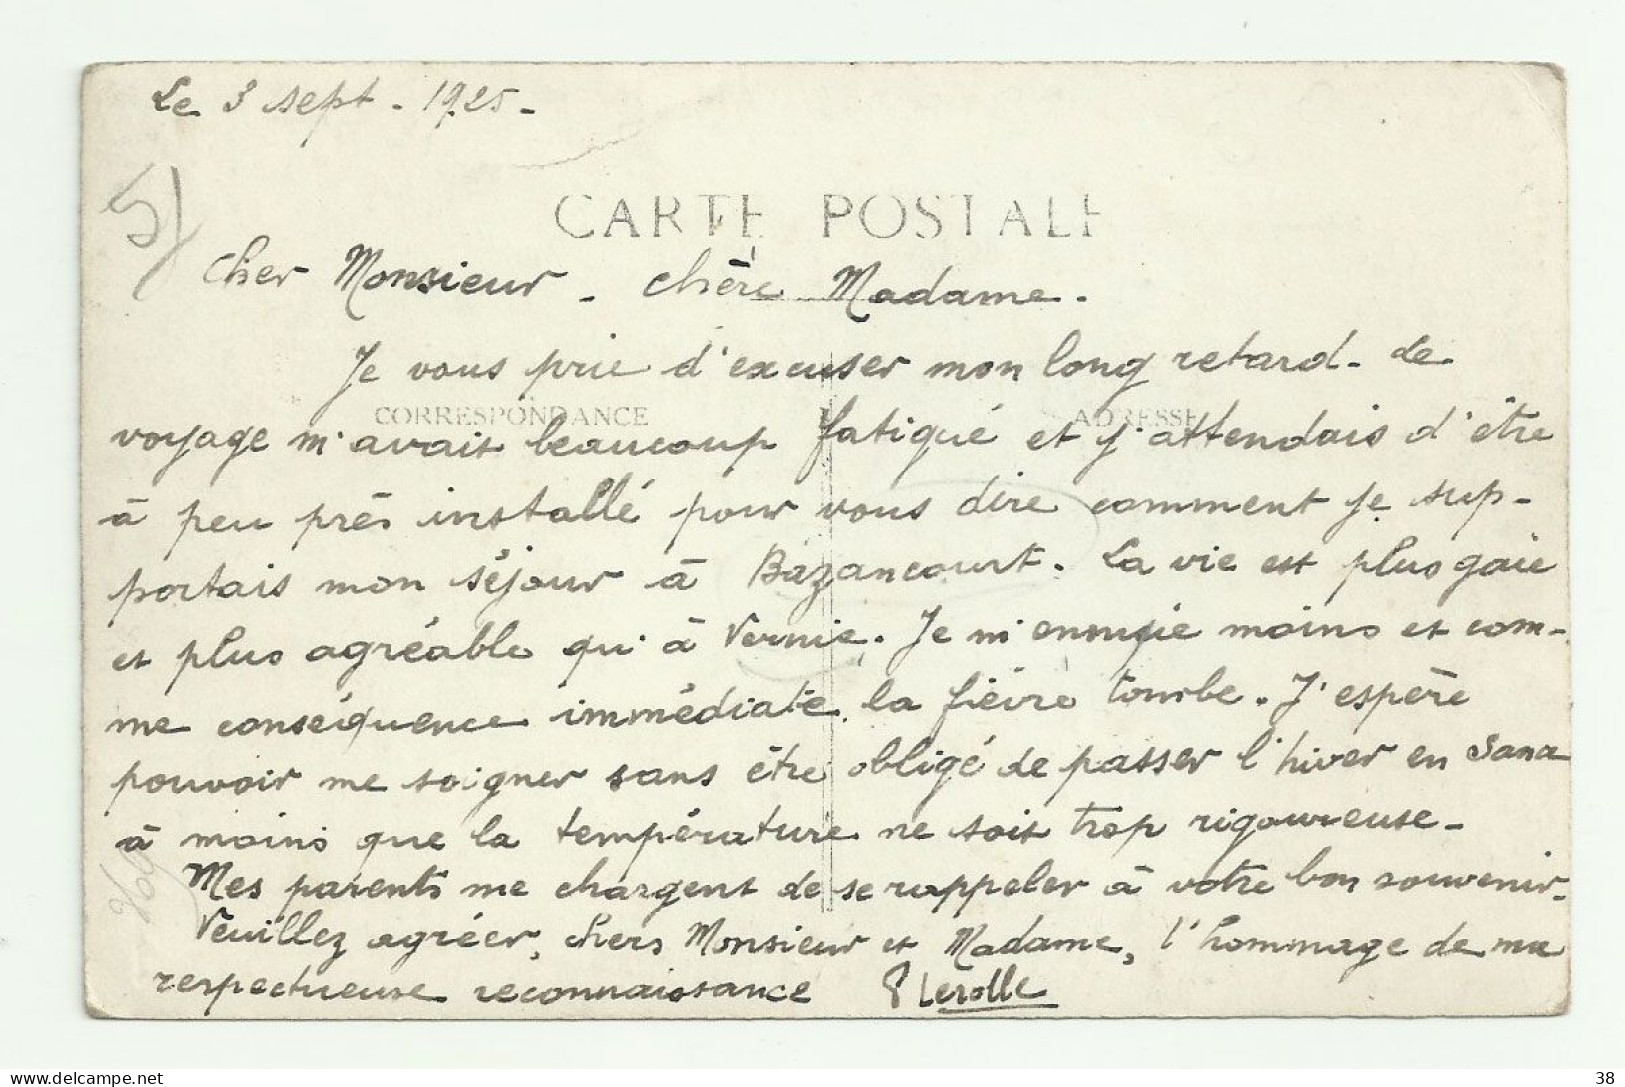 Le 3 sept - 1925 -
5f
CARTE POSTALE
Cher Monsieur - chère Madame.
Je vous prie d'excuser mon long retard - Le
CORRESPONDANCE ADRESSE
voyage m'avait beaucoup fatigué et j'attendais d'être
à peu près installé pour vous dire comment je sup-
portais mon séjour à Bazancourt. La vie est plus gaie
et plus agréable qu'à Vernie. Je m'ennuie moins et com-
me conséquence immédiate, la fièvre tombe. J'espère
pouvoir me soigner sans être obligé de passer l'hiver en Sana
à moins que la température ne soit trop rigoureuse -
Mes parents me chargent de se rappeler à votre bon souvenir -
Veuillez agréer, chers Monsieur et Madame, l'hommage de ma
respectueuse reconnaissance Lerolle
delcampe.net
bene64
38